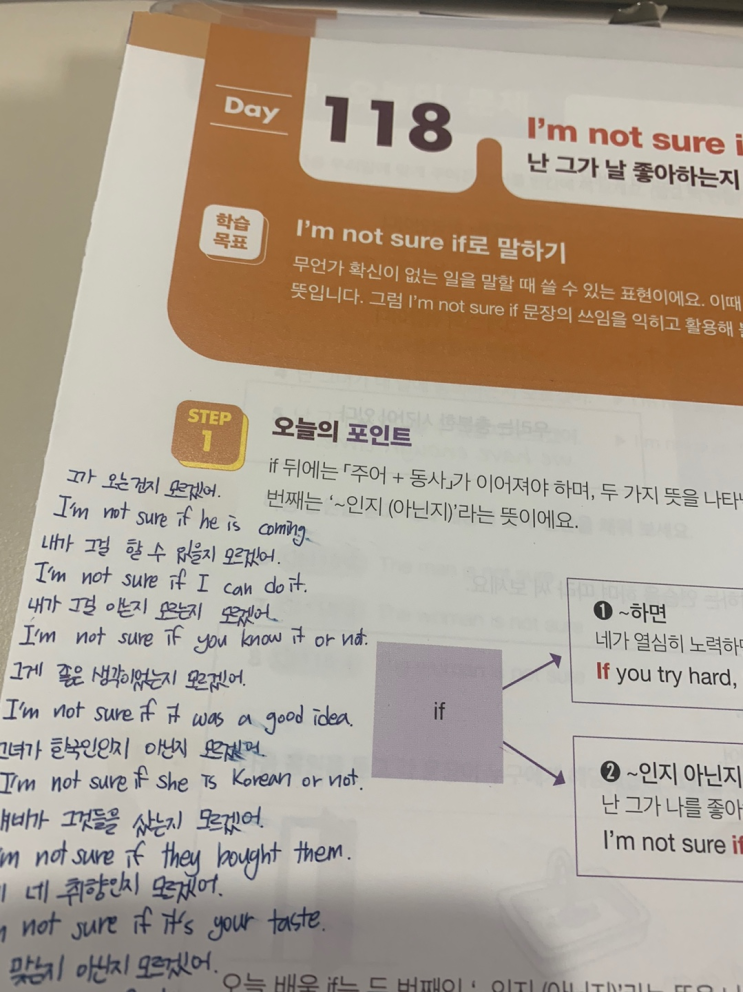 Day 118
I'm not sure i
난 그가 날 좋아하는지
학습
목표
I'm not sure if로 말하기
무언가 확신이 없는 일을 말할 때 쓸 수 있는 표현이에요. 이때
뜻입니다. 그럼 I'm not sure if 문장의 쓰임을 익히고 활용해
STEP
1
오늘의 포인트
if 뒤에는 「주어 + 동사」가 이어져야 하며, 두 가지 뜻을 나타
번째는 '~인지 (아닌지)'라는 뜻이에요.
그가 오는건지 모르겠어.
I'm not sure if he is coming.
내가 그걸 할 수 있을지 모르겠어.
I'm not sure if I can do it.
내가 그걸 아는지 모르는지 모르겠어.
I'm not sure if you know it or not.
그게 좋은 생각이었는지 모르겠어.
I'm not sure if it was a good idea.
그녀가 한국인인지 아닌지 모르겠어.
I'm not sure if she is Korean or not.
그것들을 샀는지 모르겠어.
I'm not sure if they bought them.
네 취향인지 모르겠어.
not sure if it's your taste.
맞는지 아닌지 모르겠어.
if
❶ ~하면
네가 열심히 노력하
If you try hard,
❷ ~인지 아닌지
난 그가 나를 좋아
I'm not sure if
오늘 배울 if는 두 번째인 '~인지 (아닌지)'라는 뜻